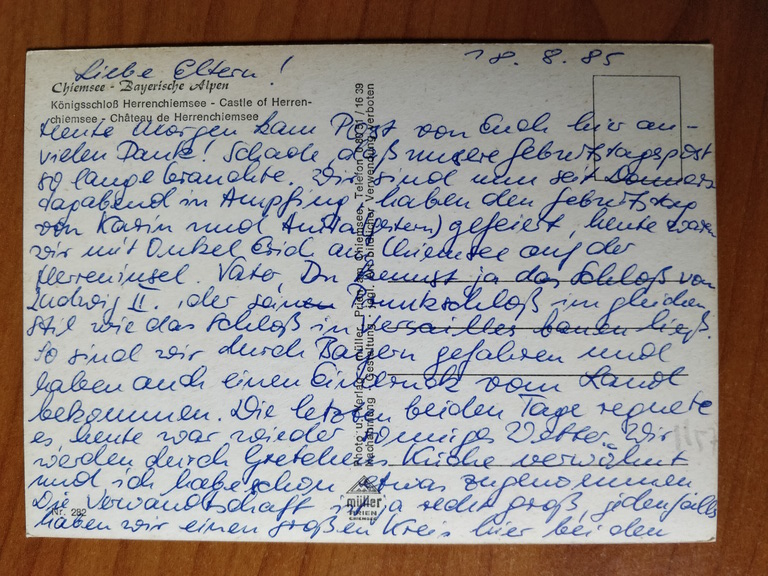 18. 8. 85
Liebe Eltern!
Chiemsee - Bayerische Alpen
Königsschloß Herrenchiemsee - Castle of Herren-
chiemsee - Château de Herrenchiemsee
Heute Morgen kam Post von Euch hier an -
vielen Dank! Schade, daß unsere Geburtstagspost
so lange brauchte. Wir sind nun seit Donners
tagabend in Ampfing, haben den Geburtstag
von Karin und (gestern) gefeiert, heute waren
wir mit Onkel Erich am Chiemsee auf der
Herreninsel. Vater, Du kennst ja das Schloß von
Ludwig II., der seinen Prunkschloß im gleichen
Stil wie das Schloß in Versailles bauen ließ.
So sind wir durch Bayern gefahren und
haben auch einen Eindruck vom Land
bekommen. Die letzten beiden Tage regnete
es, heute war wieder sonniges Wetter. Wir
werden durch Gretchens Küche verwöhnt
und ich habe schon etwas zugenommen
Die Verwandtschaft ist ja recht groß, jedenfalls
haben wir einen großen Kreis hier bei den
Nr. 282
müller
PRIEN
CHIEMSEE
Photo u. Verlag müller, Prien am Chiemsee, Telefon 0 80 51 / 16 39
Nachahmung u. Gestaltung, inkl. bildlicher Verwendung verboten